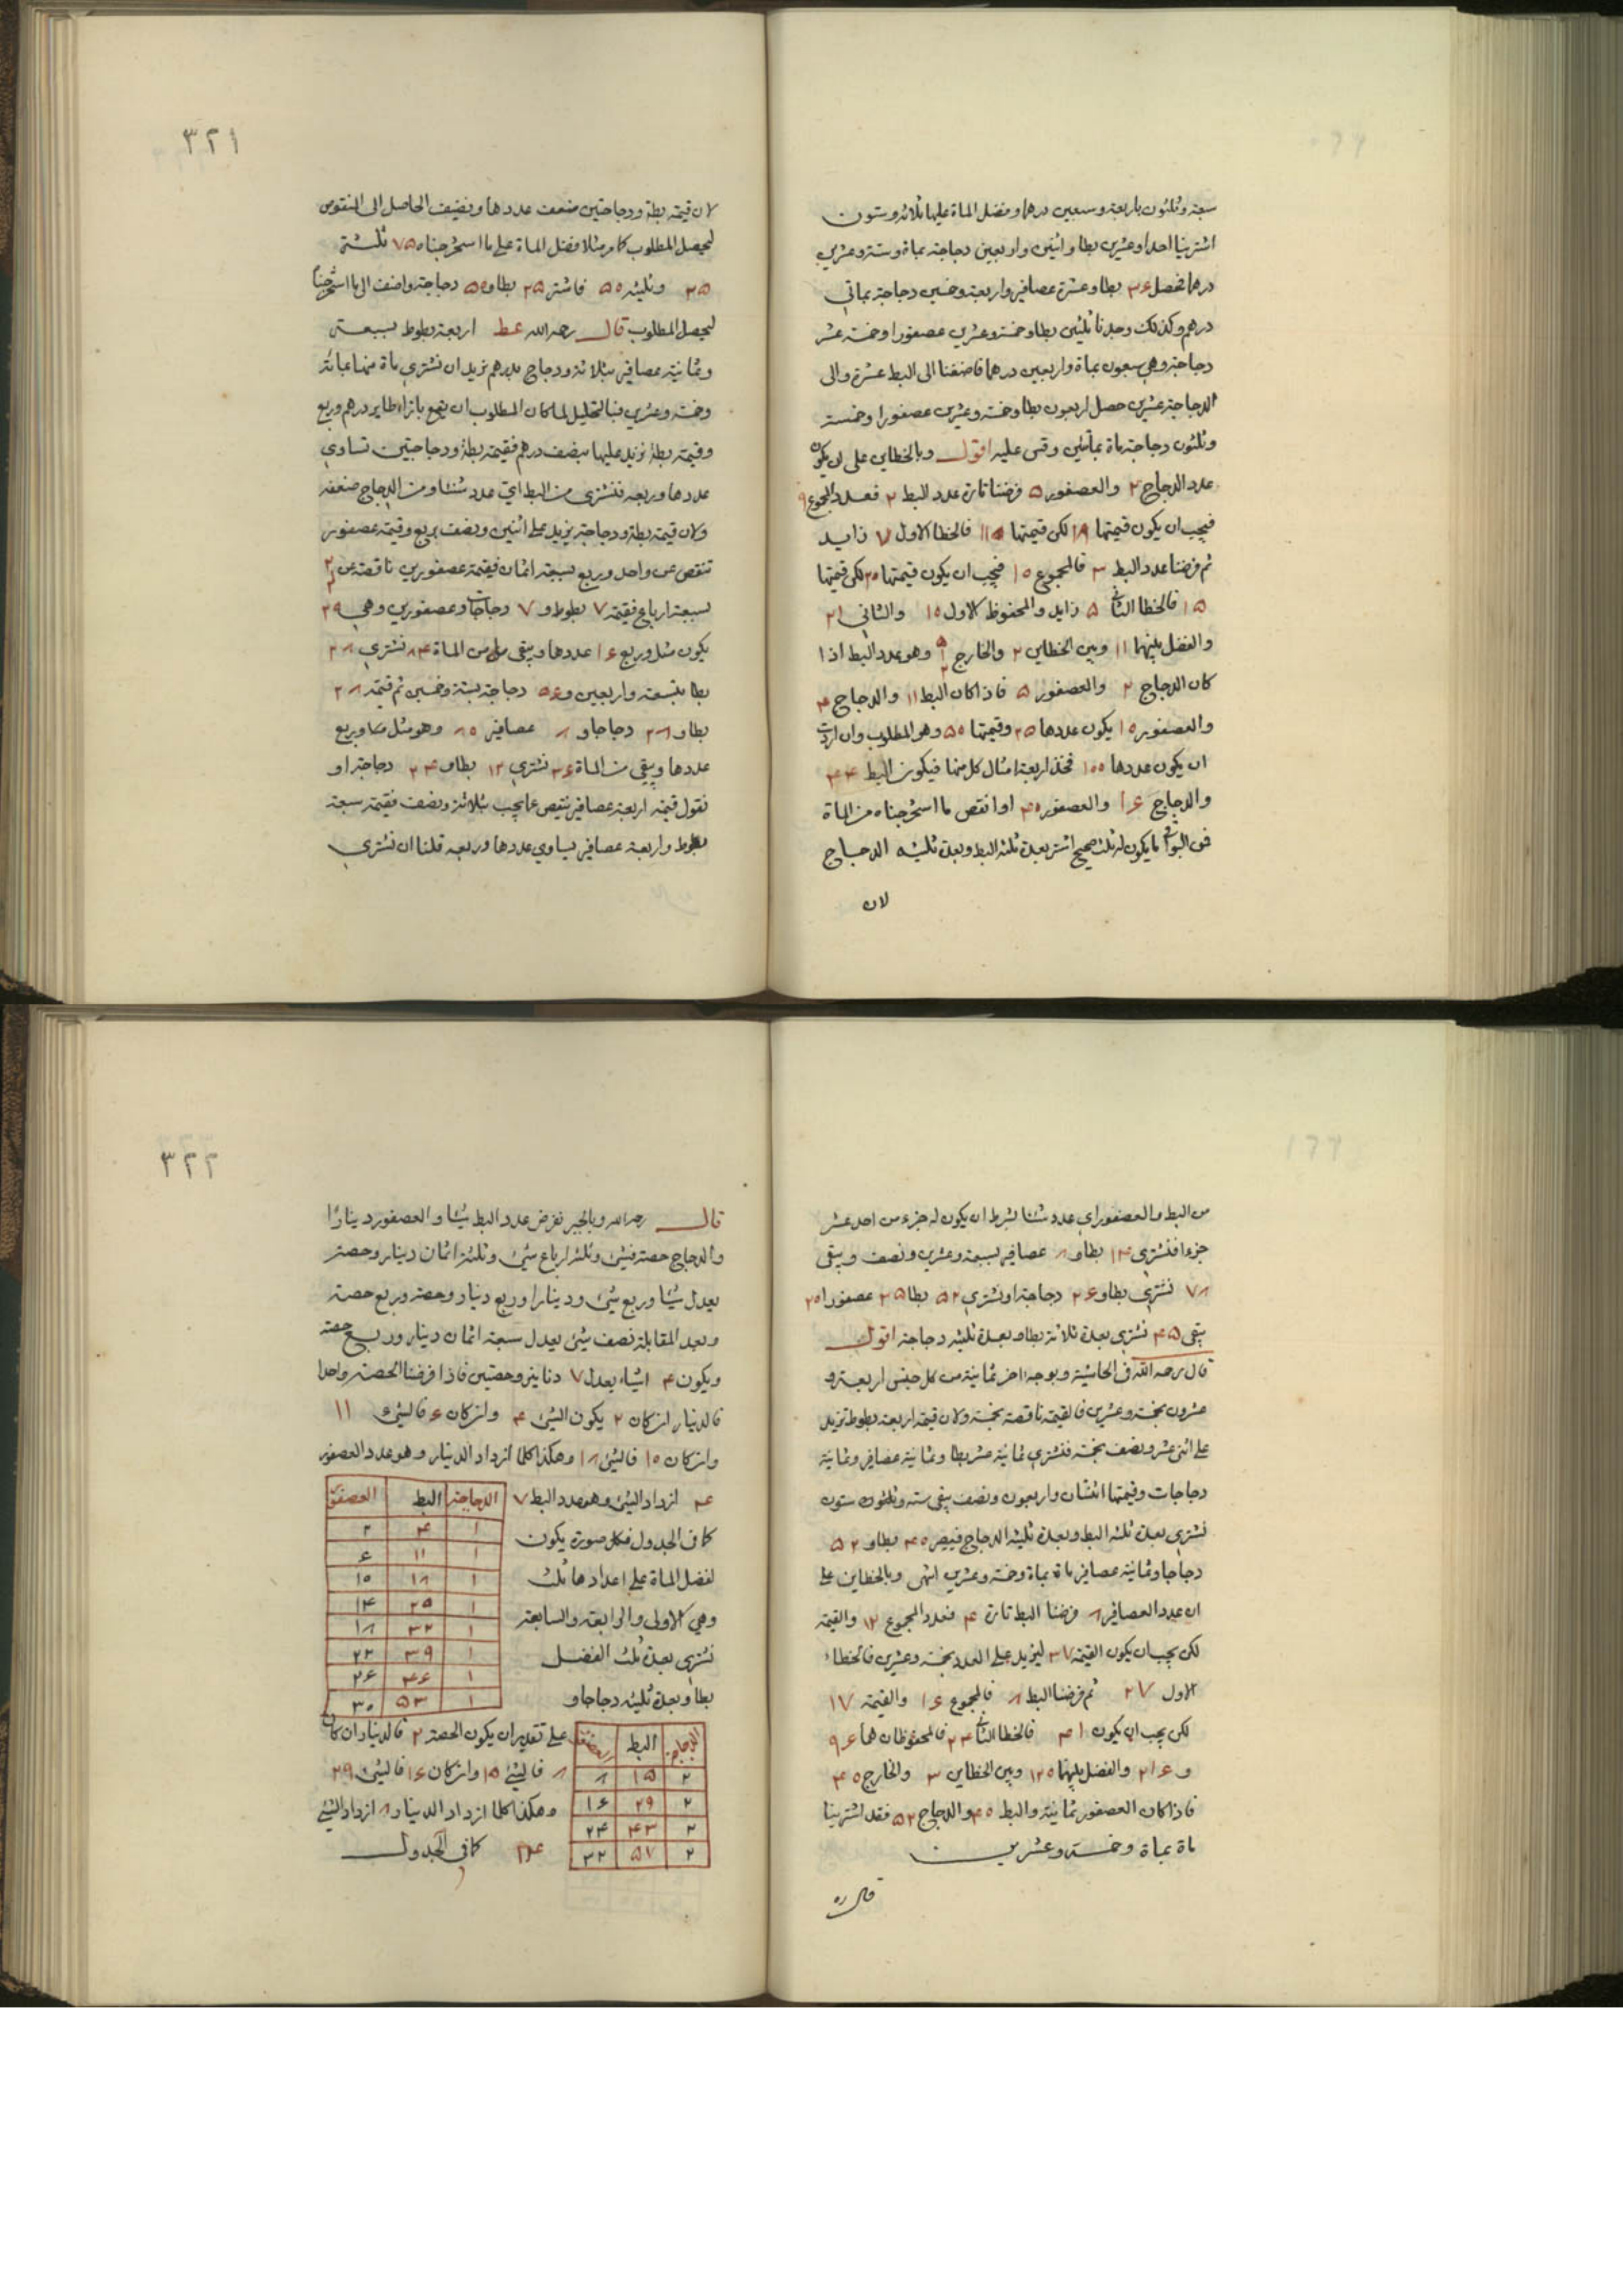 سبعة وثلثون باربعة وسبعين درهما وفضل الماة عليها ثلاثة وستون
اشترينا احدا وعشرين بطا واثنين واربعين دجاجة بماة وستة وعشرين
درهما فحصل ٣۶ بطا وعشرة عصافير واربعة وخمسين دجاجة بماتي
درهم وكذلك وجدنا ثلثين بطا وخمسة وعشرين عصفورا وخمسة عشر
دجاجة وهي سبعون بماة واربعين درهما فاضفنا الى البط عشرة والى
الدجاجة عشرين حصل اربعون بطا وخمسة وعشرين عصفورا وخمسة
وثلثون دجاجة ماة بمأتين وقس عليه اقول وبالخطاين على ان يكون
عدد الدجاج ٢ والعصفور ۵ فرضنا تارة عدد البط ٢ فعدد المجموع ٩
فيجب ان يكون قيمتها ١٨ لكن قيمتها ١١ فالخطا الاول ٧ زايد
ثم فرضنا عدد البط ٣ فالمجموع ١٥ فيجب ان يكون قيمتها ٢٥ لكن قيمتها
١۵ فالخطا الثاني ۵ زايد والمحفوظ الاول ١٥ والثاني ٢١
والفضل بينهما ١١ وبين الخطاين ٢ والخارج وهو عدد البط اذا
كان الدجاج ٢ والعصفور ۵ فاذا كان البط ١١ والدجاج ۴
والعصفور ١٥ يكون عددها ٢۵ وقيمتها ۵٥ وهو المطلوب وان اردت
ان يكون عددها ١٥٥ فخذ اربعة امثال كل منها فيكون البط ۴۴
والدجاج ١۶ والعصفور ۴٥ او انقص ما استخرجناه من الماة
ففي البواقي ما يكون له ثلث صحيح اشتر بعدة ثلثه البط وبعدة ثلثيه الدجاج
لان
٣٢١
لان قيمة بطة ودجاجتين ضعف عددها ونضيف الحاصل الى المنقوص
ليحصل المطلوب كامر مثلا فضل الماة على ما استخرجناه ٧۵ ثلثه
٢۵ وثلثيه ۵٥ فاشتر ٢۵ بطا و ۵٥ دجاجة واضف الى ما استخرجنا
ليحصل المطلوب قال رحمه الله عط اربعة بطوط بسبعة
وثمانية عصافير بثلاثة ودجاج بدرهم نريد ان نشتري ماة منها بمائة
وخمسة وعشرين فبالتحليل لما كان المطلوب ان يقع بازاء طاير درهم وربع
وقيمة بطة نزيد عليها بنصف درهم فقيمة بطة ودجاجتين تساوي
عددها وربعه فنشتري من البط اي عدد شئنا ومن الدجاج ضعفه
ولان قيمة بطة ودجاجة يزيد على اثنين ونصف بربع وقيمة عصفور
تنقص عن واحد وربع بسبعة اثمان فقيمة عصفورين ناقصة عن
بسبعة ارباع فقيمة ٧ بطوط و ٧ دجاجات وعصفورين وهي ٢٩
يكون مثل وربع ١۶ عددها ويبقى من الماة ٨۴ نشتري ٢٨
بطا بتسعة واربعين و ۵۶ دجاجة بستة وخمسين ثم قيمة ٢٨
بطا و ٢٨ دجاجا و ٨ عصافير ٨٥ وهو مثل وربع
عددها ويبقى من الماة ٣۶ نشتري ١٢ بطا و ٢۴ دجاجة او
نقول قيمة اربعة عصافير ينقص عما يجب بثلاثة ونصف فقيمة سبعة
بطوط واربعة عصافير يساوي عددها وربعه قلنا ان نشتري
من البط والعصفور اي عدد شئنا بشرط ان يكون له جزء من احد عشر
جزءا فنشتري ١۴ بطا و ٨ عصافير بسبعة وعشرين ونصف ويبقى
٧٨ نشتري بطا و ٢۶ دجاجة او نشتري ۵٢ بطا ٢۵ عصفورا ٢٥
يبقى ۴۵ نشتري بعدة ثلاثة بطا وبعدة ثلثيه دجاجة اقول
قال رحمه الله في الحاشية وبوجه اخر ثمانية من كل جنس اربعة و
عشرون بخمسة وعشرين فالقيمة ناقصة بخمسة ولان قيمة اربعة بطوط تزيد
على اثنى عشر ونصف بخمسة فنشتري ثمانية عشر بطا وثمانية عصافير وثمانية
دجاجات وقيمتها اثنتان واربعون ونصف يبقى ستة وثلثون ستون
نشتري بعدة ثلثه البط وبعدة ثلثيه الدجاج فيصير ۴٥ بطا و ۵٢
دجاجا وثمانية عصافير ماة بماة وخمسة وعشرين انتهى وبالخطاين على
ان عدد العصافير ٨ فرضنا البط تارة ۴ فعدد المجموع ١٢ والقيمة
لكن يجب ان يكون القيمة ٣٧ ليزيد على العدد بخمسة وعشرين فالخطاء
الاول ٢٧ ثم فرضنا البط ٨ فالمجموع ١۶ والقيمة ١٧
لكن يجب ان يكون ۴١ فالخطا الثاني ٢۴ فالمحفوظان هما ٩۶
و ٢١۶ والفضل بينهما ١٢٥ وبين الخطاين ٣ والخارج ۴٥
فاذا كان العصفور ثمانية والبط ۴٥ والدجاج ۵٢ فقد اشترينا
ماة بماة وخمسة وعشرين
قال ره
٣٢٢
قال رحمه الله وبالجبر نفرض عدد البط شيئا والعصفور دينارا
والدجاج حصة فشئ وثلثة ارباع شئ وثلثة اثمان دينار وحصة
يعدل شيئا وربع شئ ودينارا وربع دينار وحصة وربع حصة
وبعد المقابلة نصف شئ يعدل سبعة اثمان دينار وربع حصة
ويكون ۴ اشياء يعدل ٧ دنانير وحصتين فاذا فرضنا الحصة واحدا
فالدينار ان كان ٢ يكون الشئ ۴ وان كان ۶ فالشئ ١١
وان كان ١٥ فالشئ ١٨ وهكذا كلما ازداد الدينار وهو عدد العصفور
۴ ازداد الشئ وهو عدد البط ٧
كما في الجدول فكل صورة يكون
لفضل الماة على اعدادها ثلث
وهي الاولى والرابعة والسابعة
نشتري بعدة ثلث الفضل
بطا وبعدة ثلثيه دجاجا و
الدجاجة البط العصفور
١ ۴ ٢
١ ١١ ۶
١ ١٨ ١٥
١ ٢۵ ١۴
١ ٣٢ ١٨
١ ٣٩ ٢٢
١ ۴۶ ٢۶
١ ۵٣ ٣٥
على تقدير ان يكون الحصة ٢ فالدينار ان كان
٨ فالشئ ١۵ وان كان ١۶ فالشئ ٢٩
وهكذا كلما ازداد الدينار ٨ ازداد الشئ
١۴ كما في الجدول
الدجاج البط العصفور
٢ ١۵ ٨
٢ ٢٩ ١۶
٢ ۴٣ ٢۴
٢ ۵٧ ٣٢